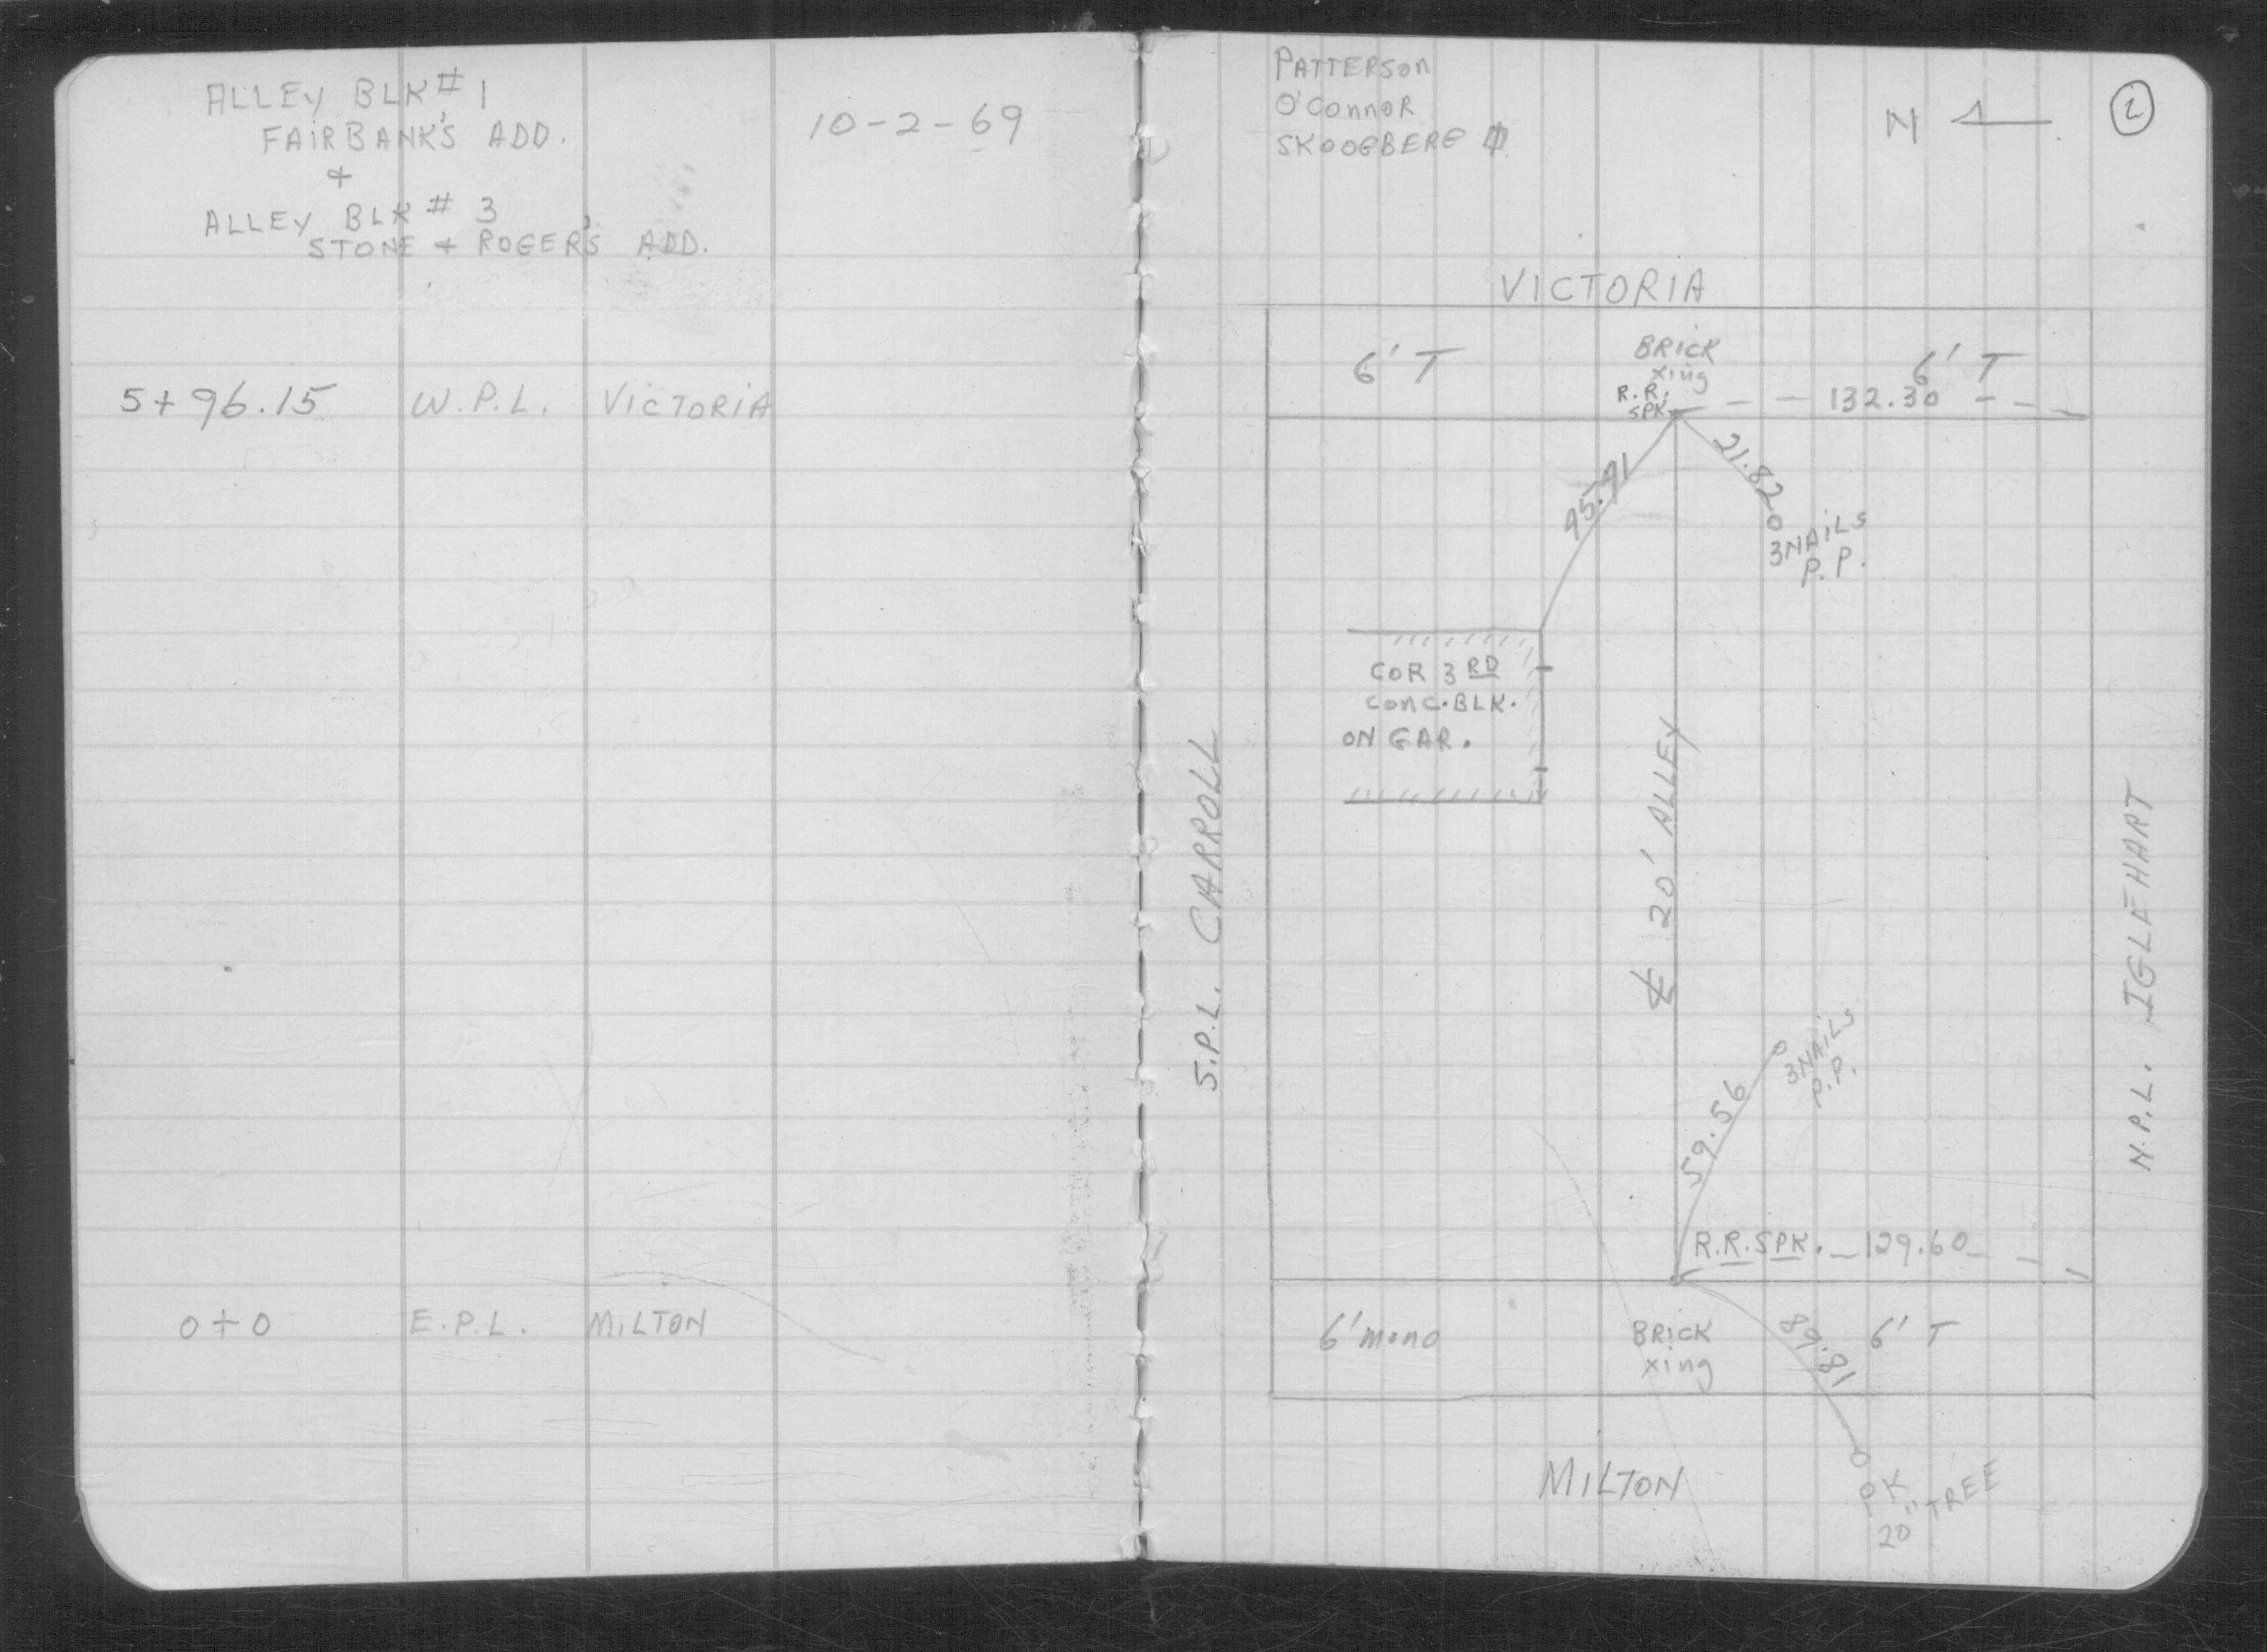 ALLEY BLK #1
FAIRBANK'S ADD.
+
ALLEY BLK # 3
STONE + ROGER'S ADD.
10-2-69
5+96.15 W.P.L. VICTORIA
0+0 E.P.L. MILTON
PATTERSON
O'CONNOR
SKOOGBERG
N
2
VICTORIA
6' T
BRICK
xing
6' T
R.R.
SPK
132.30
21.82
3 NAILS
P.P.
COR 3RD
CONC. BLK.
ON GAR.
S.P.L. CARROLL
℄ 20' ALLEY
N.P.L. IGLEHART
3 NAILS
P.P.
59.56
R.R. SPK. 129.60
6' mono
BRICK
xing
89.81
6' T
MILTON
PK
20" TREE